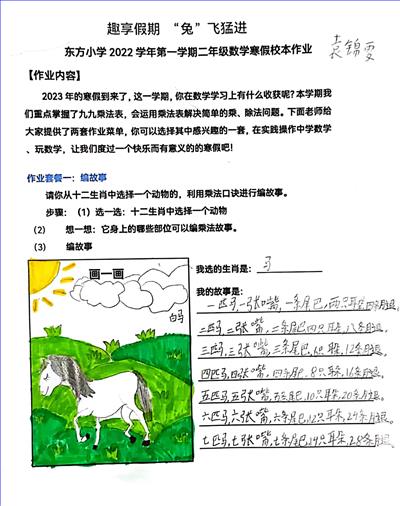 趣享假期 “兔”飞猛进
东方小学2022学年第一学期二年级数学寒假校本作业
袁锦雯
【作业内容】
2023年的寒假到来了，这一学期，你在数学学习上有什么收获呢？本学期我
们重点掌握了九九乘法表，会运用乘法表解决简单的乘、除法问题。下面老师给
大家提供了两套作业菜单，你可以选择其中感兴趣的一套，在实践操作中学数学
、玩数学，让我们度过一个快乐而有意义的的寒假吧！
作业套餐一：编故事
请你从十二生肖中选择一个动物的，利用乘法口诀进行编故事。
步骤：（1）选一选：十二生肖中选择一个动物
（2） 想一想：它身上的哪些部位可以编乘法故事。
（3） 编故事
画一画
白马
我选的生肖是：马
我的故事是：
一匹马，一张嘴，一条尾巴，两只耳朵四条腿，
二匹马，二张嘴，二条尾巴四只耳朵，八条腿，
三匹马，三张嘴，三条尾巴，6只耳朵，12条腿，
四匹马，四张嘴，四条尾巴，8只耳朵，16条腿，
五匹马，五张嘴，五条尾巴，10只耳朵，20条腿，
六匹马，六张嘴，六条尾巴，12只耳朵，24条腿，
七匹马，七张嘴，七条尾巴，14只耳朵，28条腿。